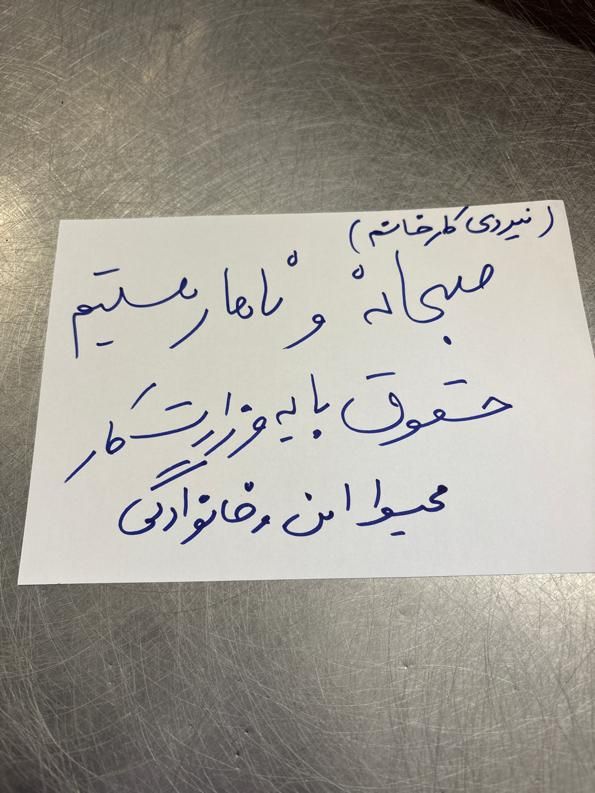 (نیروی کارخانه)
صبحانه و ناهار هستیم
حقوق پایه وزارت کار
محیط امن و خانوادگی